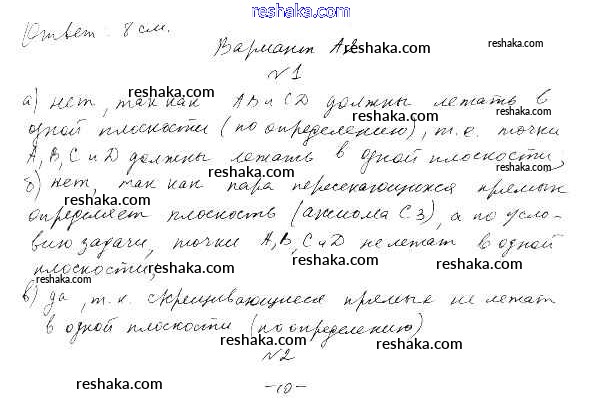 reshaka.com
Ответ: 8 см.
Вариант А2 reshaka.com reshaka.com
№1
reshaka.com
а) нет, так как AB и CD должны лежать в
reshaka.com
одной плоскости (по определению), т.е. точки
reshaka.com
A, B, C и D должны лежать в одной плоскости;
reshaka.com
б) нет, так как пара пересекающихся прямых
reshaka.com
определяет плоскость (аксиома С3), а по усло-
reshaka.com
вию задачи, точки A, B, C и D не лежат в одной
reshaka.com
плоскости; reshaka.com
reshaka.com
в) да, т.к. скрещивающиеся прямые не лежат
reshaka.com
в одной плоскости (по определению)
reshaka.com reshaka.com
№2
reshaka.com reshaka.com
-10-